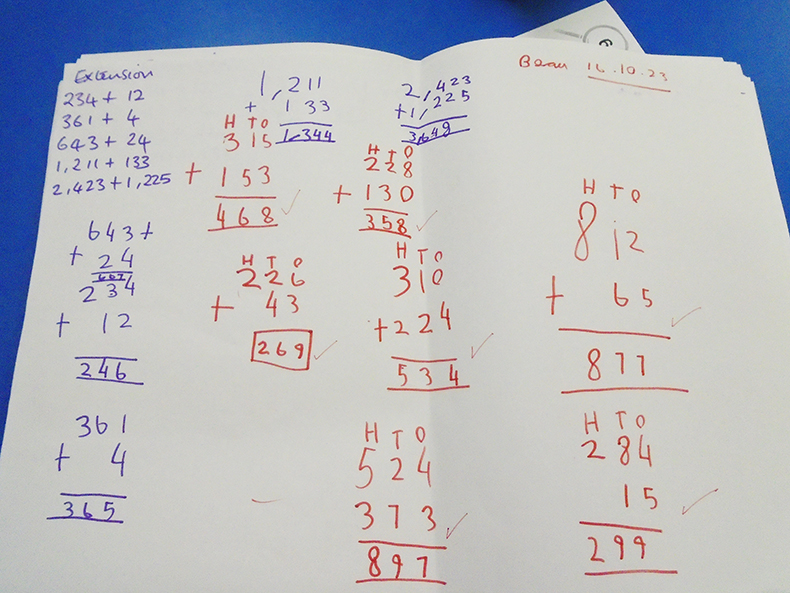 Extension
234 + 12
361 + 4
643 + 24
1,211 + 133
2,423 + 1,225
643 +
+ 24
234
+ 12
246
361
+ 4
365
1,211
+ 133
1,344
H T O
315
+ 153
468
H T O
226
+ 43
269
2,423
+1,225
H T O
228
+ 130
358
H T O
310
+224
534
H T O
524
373
897
16.10.23
H T O
812
+ 65
877
H T O
284
15
299